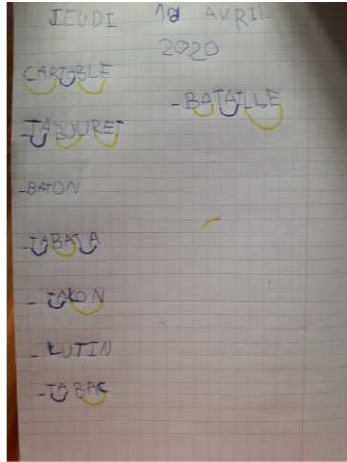 JEUDI AVRIL
2020
CARTABLE
-BATAILLE
-TABOURET
-BATON
-TABATA
- LUTIN
-TABAC